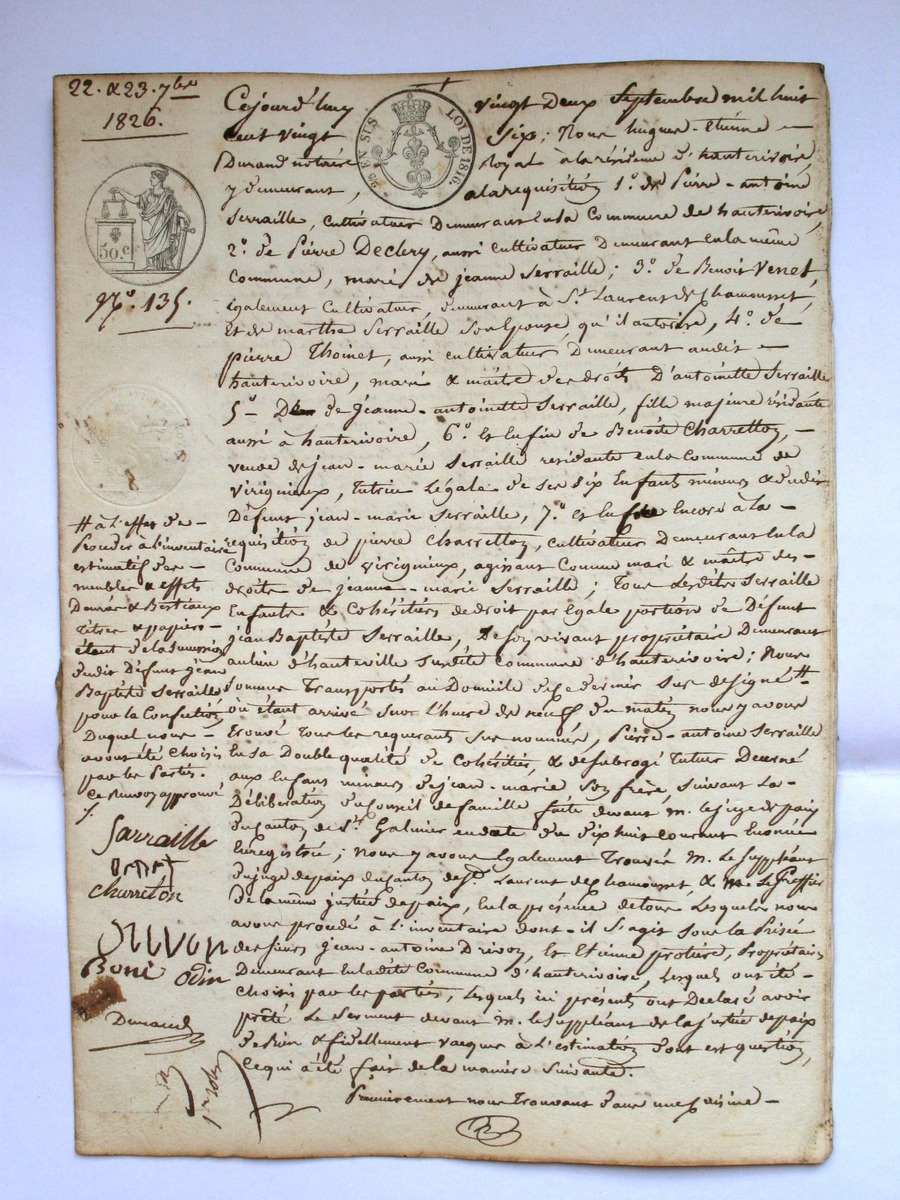 22. & 23. 7bre
1826.
50.c
No. 135.
25 EN SUS
LOI DE 1816.
Cejourd'huy vingt deux Septembre mil huit
cent vingt Six; Nous hugues-Etienne
Durand notaire royal à la résidence d'hauterivoire
y demeurant, à la requisition 1o. de Pierre-antoine
Serraille, cultivateur Demeurant en la Commune de hauterivoire,
2o. de Pierre Declery, aussi cultivateur Demeurant en la même
commune, mari de jeanne Serraille; 3o. de Benoit Venet,
également Cultivateur, demeurant à St. Laurent de Chamousset,
Et de marthe Serraille Son Epouse, qu'il autorise, 4o. de
pierre Thoinet, aussi cultivateur Demeurant audit
hauterivoire, mari & maître des droits D'antoinette Serraille
5o de jeanne-antoinette Serraille, fille majeure résidante
aussi à hauterivoire, 6o. et enfin de Benoite Charretton,
veuve de jean-marie Serraille residante en la Commune de
Virigneux, tutrice Légale de ses six Enfants mineurs & dudit
Défunt jean-marie Serraille, 7o. et Encore à la
requisition de pierre Charretton, cultivateur Demeurant en la
Commune de Virigneux, agissant Comme mari & maître des
droits de jeanne-marie Serraille; Tous Lesdits Serraille
Enfants & Cohéritiers de droit par Egale portion de Défunt
jean Baptiste Serraille, De son vivant propriétaire Demeurant
au lieu d'hauteville Susdite Commune d'hauterivoire; Nous
Sommes Transportés au Domicile de ce dernier Sus designé #
où étant arrivé Sur L'heure de neuf du matin nous y avons
trouvé Tous les requerants Sus nommés, Pierre-antoine Serraille
En sa Double qualité de Cohéritier, & de subrogé Tuteur Decerné
aux Enfans mineurs de jean-marie Son frère, Suivant La
Délibération du Conseil de famille faite devant m. le juge de paix
du Canton de St. Galmier en date du dix huit courant
Enregistrée; nous y avons Egalement Trouvés M. Le Suppléant
du juge de paix du Canton de St. Laurent de Chamousset, & Le Greffier
De la même justice de paix, En la présence de tous Lesquels nous
avons procédé à L'inventaire dont-il S'agit Sous la Prisée
des sieurs jean-antoine Drivon, Et Etienne protière, Propriétaires
Demeurant En ladite Commune d'hauterivoire, Lesquels ont été
choisis par les parties, Lesquels ici présents ont Déclaré avoir
prêté Le Serment devant m. le Suppléant de la justice de paix
de bien & fidellement vaquer à L'estimation dont est question,
Ce qui a été fait de la manière Suivante.
Premièrement nous Trouvant dans une cuisine
# à L'effet de
Proceder à L'inventaire
estimatif des
meubles & effets
Denrées & Bestiaux
Titres & papiers
étant de la Succession
dudit Défunt jean
Baptiste Serraille
pour la Confection
Duquel nous
avons été Choisis
par les Parties.
Ce Renvoy approuvé
Sarraille
charreton
Boni odin
Durand